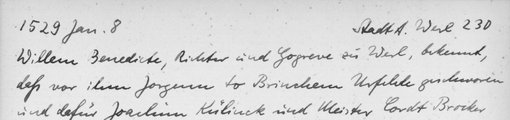 1529 Jan. 8 Stadt A. Werl 230
Willem Benedicte, Richter und Gogreve zu Werl, bekennt,
daß vor ihm Jorgenn to Brinchem Urfehde geschworen
und dafür Joachim Külinck und Meister Cordt Broiker